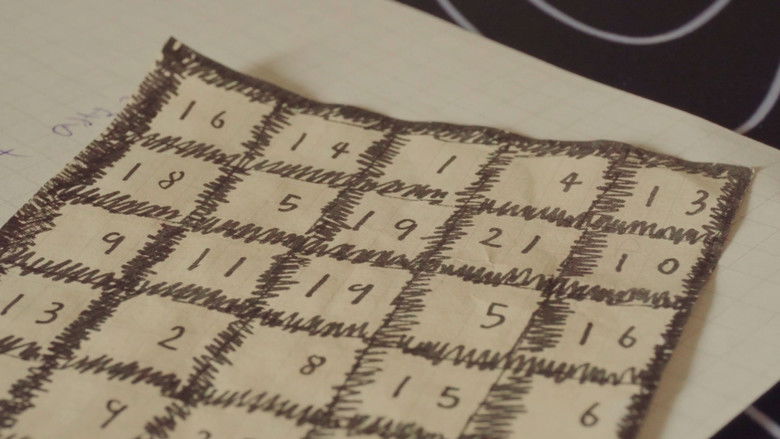 16 14 1 4 13
18 5 19 21 10
9 11 19 5 16
13 2 8 15 6
9